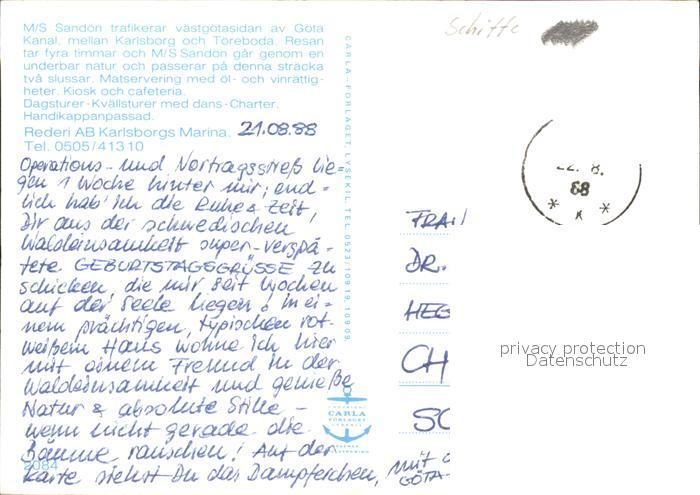 Schiffe
M/S Sandön trafikerar västgötasidan av Göta
Kanal, mellan Karlsborg och Töreboda. Resan
tar fyra timmar och M/S Sandön går genom en
underbar natur och passerar på denna sträcka
två slussar. Matservering med öl- och vinrättig-
heter. Kiosk och cafeteria.
Dagsturer-Kvällsturer med dans-Charter.
Handikappanpassad.
Rederi AB Karlsborgs Marina. 21.08.88
Tel. 0505/41310
Operations- und Vortragsstreß lie=
gen 1 Woche hinter mir, end=
lich hab' ich die Ruhe & Zeit,
Dir aus der schwedischen
Waldeinsamkeit super-verspä-
tete GEBURTSTAGSGRÜSSE zu
schicken, die mir seit Wochen
auf der Seele liegen! In ei-
nem prächtigen, typischen rot-
weißem Haus wohne ich hier
mit einem Freund in der
Waldeinsamkeit und genieße
Natur & absolute Stille –
wenn nicht gerade die
Bäume rauschen! Auf der
Karte siehst Du das Dampferchen,
mit
GÖTA-
2084
CARLA-FÖRLAGET, LYSEKIL, TEL. 0523/10919, 10909
CARLA
FÖRLAGET
LYSEKIL
22. 8.
88
FRAU
DR.
HEG
CH
SC
privacy protection
Datenschutz